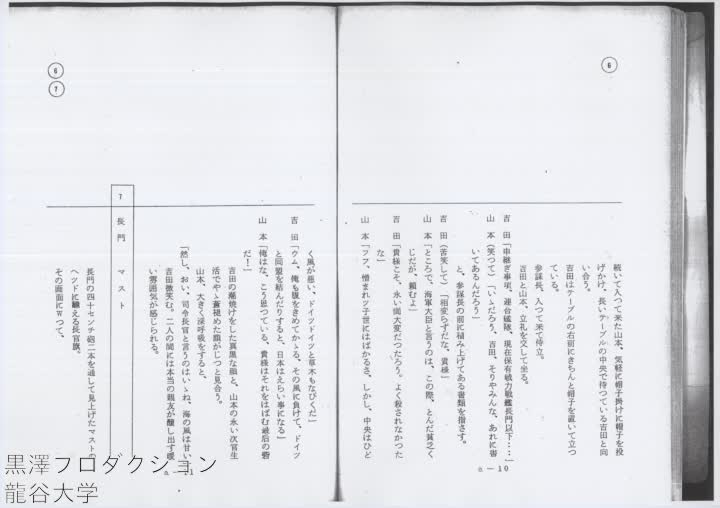 ⑥
続いて入つて来た山本、気軽に帽子掛けに帽子を投
げかけ、長いテーブルの中央で待つている吉田と向
い合う。
吉田はテーブルの右前にきちんと帽子を置いて立つ
ている。
参謀長、入つて来て侍立。
吉田と山本、立礼を交して坐る。
吉田「申継ぎ事項、連合艦隊、現在保有戦力戦艦長門以下……」
山本（笑つて）「いゝだろう、吉田、そりやみんな、あれに書
いてあるんだろう」
と、参謀長の前に積み上げてある書類を指さす。
吉田（苦笑して）「相変らずだな、貴様」
山本「ところで、海軍大臣と言うのは、この際、とんだ貧乏く
じだが、頼むよ」
吉田「貴様こそ、永い間大変だつたろう。よく殺されなかつた
な」
山本「フフ、憎まれツ子世にはばかるさ、しかし、中央はひど
a－10
⑥
⑦
く風が悪い、ドイツドイツと草木もなびくだ」
吉田「ウム、俺も腹をきめてかゝる、その風に負けて、ドイツ
と同盟を結んだりすると、日本はえらい事になる」
山本「俺はな、こう思つている、貴様はそれをはばむ最后の砦
だ！」
吉田の潮焼けをした真黒な顔と、山本の永い次官生
活でやゝ蒼褪めた顔がじつと見合う。
山本、大きく深呼吸をすると、
「然し、おい、司令長官と言うのはいゝね、海の風は甘い」
吉田微笑む。二人の間には本当の親友が醸し出す暖
い雰囲気が感じられる。
7 長門 マスト
長門の四十センチ砲二本を通して見上げたマストの
ヘツドに翻える長官旗。
その画面にWつて、
a－11
黒澤プロダクション
龍谷大学